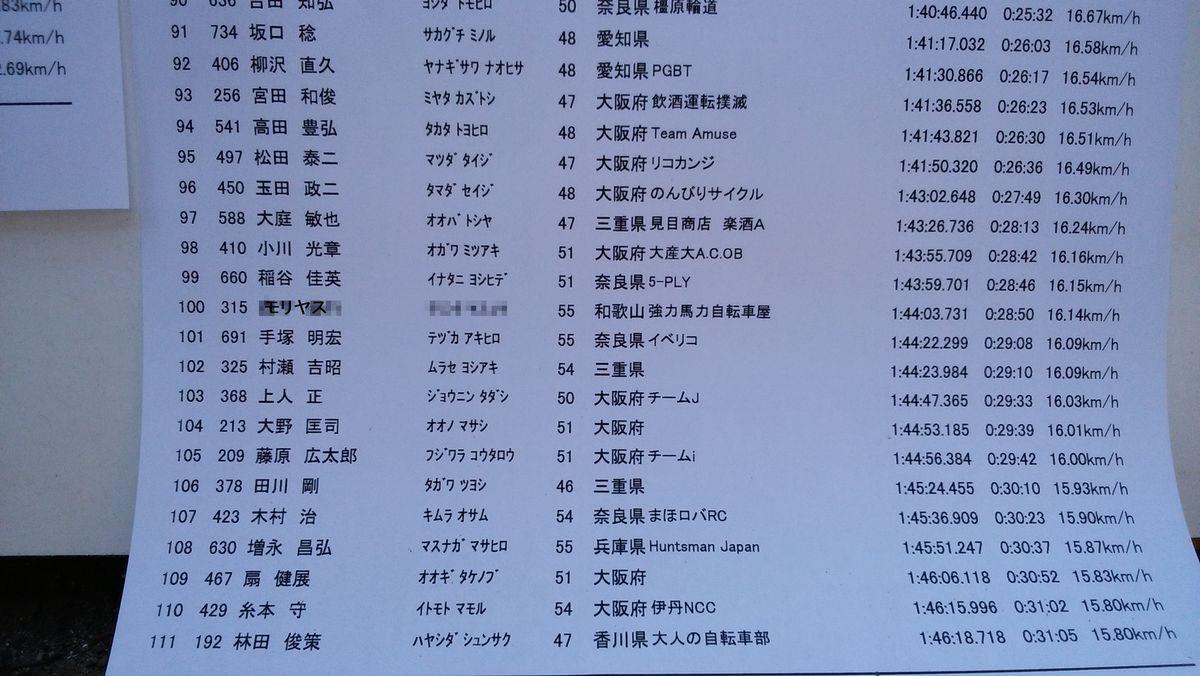 .83km/h
.74km/h
2.69km/h
90 636 吉田 知弘 ﾖｼﾀﾞ ﾄﾓﾋﾛ 50 奈良県 橿原輪道 1:40:46.440 0:25:32 16.67km/h
91 734 坂口 稔 ｻｶｸﾞﾁ ﾐﾉﾙ 48 愛知県 1:41:17.032 0:26:03 16.58km/h
92 406 柳沢 直久 ﾔﾅｷﾞｻﾜ ﾅｵﾋｻ 48 愛知県 PGBT 1:41:30.866 0:26:17 16.54km/h
93 256 宮田 和俊 ﾐﾔﾀ ｶｽﾞﾄｼ 47 大阪府 飲酒運転撲滅 1:41:36.558 0:26:23 16.53km/h
94 541 高田 豊弘 ﾀｶﾀ ﾄﾖﾋﾛ 48 大阪府 Team Amuse 1:41:43.821 0:26:30 16.51km/h
95 497 松田 泰二 ﾏﾂﾀﾞ ﾀｲｼﾞ 47 大阪府 リコカンジ 1:41:50.320 0:26:36 16.49km/h
96 450 玉田 政二 ﾀﾏﾀﾞ ｾｲｼﾞ 48 大阪府 のんびりサイクル 1:43:02.648 0:27:49 16.30km/h
97 588 大庭 敏也 ｵｵﾊﾞ ﾄｼﾔ 47 三重県 見目商店 楽酒A 1:43:26.736 0:28:13 16.24km/h
98 410 小川 光章 ｵｶﾞﾜ ﾐﾂｱｷ 51 大阪府 大産大A.C.OB 1:43:55.709 0:28:42 16.16km/h
99 660 稲谷 佳英 ｲﾅﾀﾆ ﾖｼﾋﾃﾞ 51 奈良県 5-PLY 1:43:59.701 0:28:46 16.15km/h
100 315 モリヤス 55 和歌山 強力馬力自転車屋 1:44:03.731 0:28:50 16.14km/h
101 691 手塚 明宏 ﾃﾂﾞｶ ｱｷﾋﾛ 55 奈良県 イベリコ 1:44:22.299 0:29:08 16.09km/h
102 325 村瀬 吉昭 ﾑﾗｾ ﾖｼｱｷ 54 三重県 1:44:23.984 0:29:10 16.09km/h
103 368 上人 正 ｼﾞｮｳﾆﾝ ﾀﾀﾞｼ 50 大阪府 チームJ 1:44:47.365 0:29:33 16.03km/h
104 213 大野 匡司 ｵｵﾉ ﾏｻｼ 51 大阪府 1:44:53.185 0:29:39 16.01km/h
105 209 藤原 広太郎 ﾌｼﾞﾜﾗ ｺｳﾀﾛｳ 51 大阪府 チームi 1:44:56.384 0:29:42 16.00km/h
106 378 田川 剛 ﾀｶﾞﾜ ﾂﾖｼ 46 三重県 1:45:24.455 0:30:10 15.93km/h
107 423 木村 治 ｷﾑﾗ ｵｻﾑ 54 奈良県 まほロバRC 1:45:36.909 0:30:23 15.90km/h
108 630 増永 昌弘 ﾏｽﾅｶﾞ ﾏｻﾋﾛ 55 兵庫県 Huntsman Japan 1:45:51.247 0:30:37 15.87km/h
109 467 扇 健展 ｵｵｷﾞ ﾀｹﾉﾌﾞ 51 大阪府 1:46:06.118 0:30:52 15.83km/h
110 429 糸本 守 ｲﾄﾓﾄ ﾏﾓﾙ 54 大阪府 伊丹NCC 1:46:15.996 0:31:02 15.80km/h
111 192 林田 俊策 ﾊﾔｼﾀﾞ ｼｭﾝｻｸ 47 香川県 大人の自転車部 1:46:18.718 0:31:05 15.80km/h